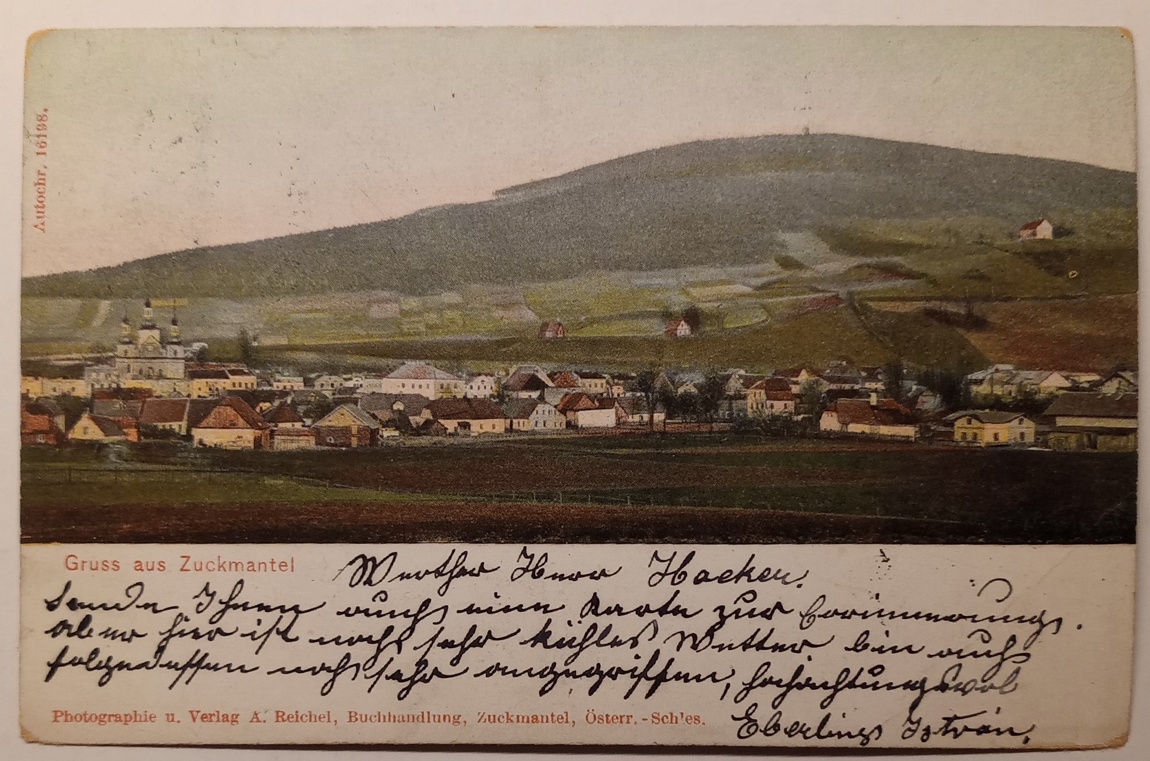 Autochr. 16198.
Gruss aus Zuckmantel
Werther Herr Hacker.
Sende Ihnen auch eine Karte zur Erinnerung.
aber hier ist noch sehr kühles Wetter bin auch
folgedessen noch sehr angegriffen, hochachtungsvol
Photographie u. Verlag A. Reichel, Buchhandlung, Zuckmantel, Österr.-Schles.
Eberling István.